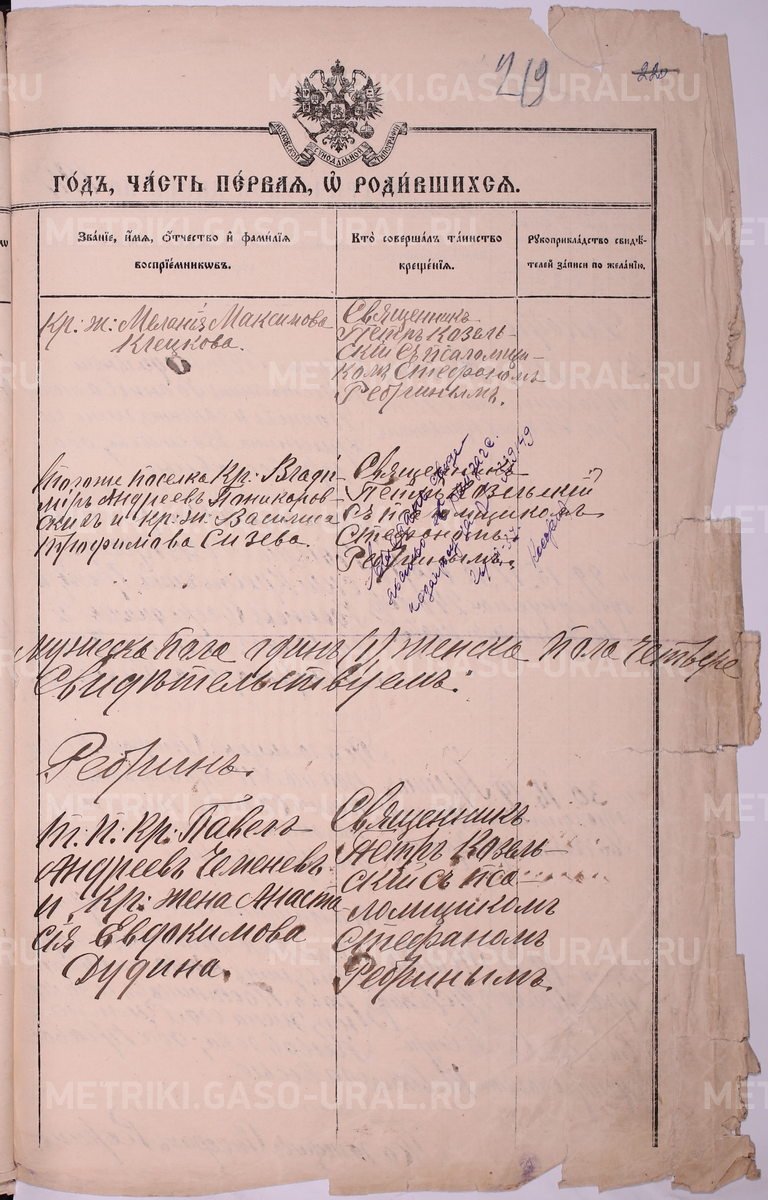 219
220
МОСКОВСКОЙ СѴНОДАЛЬНОЙ ТИПОГРАФІИ
ГО́ДЪ, ЧА́СТЬ ПЕ́РВАЯ, Ѽ РОДИ́ВШИХСЯ.
Зва́нїе, и҆́мя, ѻ҆́тчество и҆ фами́лїя
воспрїе́мникѡвъ.
Кто̀ соверша́лъ та́инство
креще́нїя.
Рукоприкла́дство свидѣ́-
телей за́писи по жела́нїю.
Кр: ж: Меланія Максимова
Клецкова.
Священникъ
Петръ Козель-
скій съ псаломщи-
комъ Стефаномъ
Ребринымъ.
Тогоже поселка Кр: Влади
міръ Андреевъ Поникаров-
скихъ и кр: ж: Василиса
Трофимова Сизева.
Священникъ
Петръ Козельскій
съ псаломщикомъ
Стефаномъ
Ребринымъ.
Мужеска пола одинъ (1) женска пола четверо
Свидѣтельствуемъ:
Ребринъ.
т. п: Кр: Павелъ
Андреевъ Чеменевъ
и Кр: жена Анаста
сія Евдокимова
Дудина.
Священникъ
Петръ Козель-
скій съ пса-
ломщикомъ
Стефаномъ
Ребринымъ.
METRIKI.GASO-URAL.RU